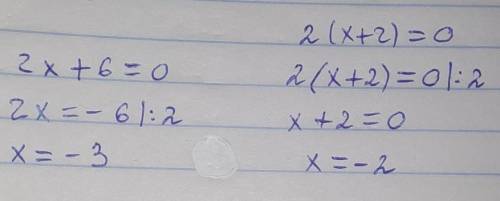 2x + 6 = 0
2x = - 6 |: 2
x = - 3
2 (x+2) = 0
2 (x+2) = 0 |: 2
x + 2 = 0
x = - 2